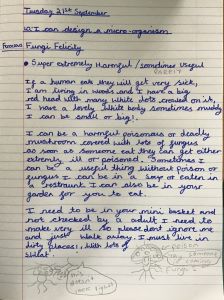 Tuesday 21st September
LO I can design a micro-organism
Fungi Felicity
• Super extremely harmful / sometimes useful
If a human eats they will get very sick,
I am living in woods and I have a big
red head with many white dots crowded on it,
I have a lovely white body sometimes muddy
I can be small or big!.
I can be a harmful poisonous or deadly
mushroom covered with lots of fungus
as soon as someone eat they can get either
extremely ill or poisoned. Sometimes I
can be a useful thing without poison or
fungus I can be in a soup or eaten in
a restraunt. I can also be in your
garden for you to eat.
I need to be your mini basket and
not checked by a adult I need to
make very ill so please dont ignore me
and just walk away. I must live in
dirty places!, with lots of